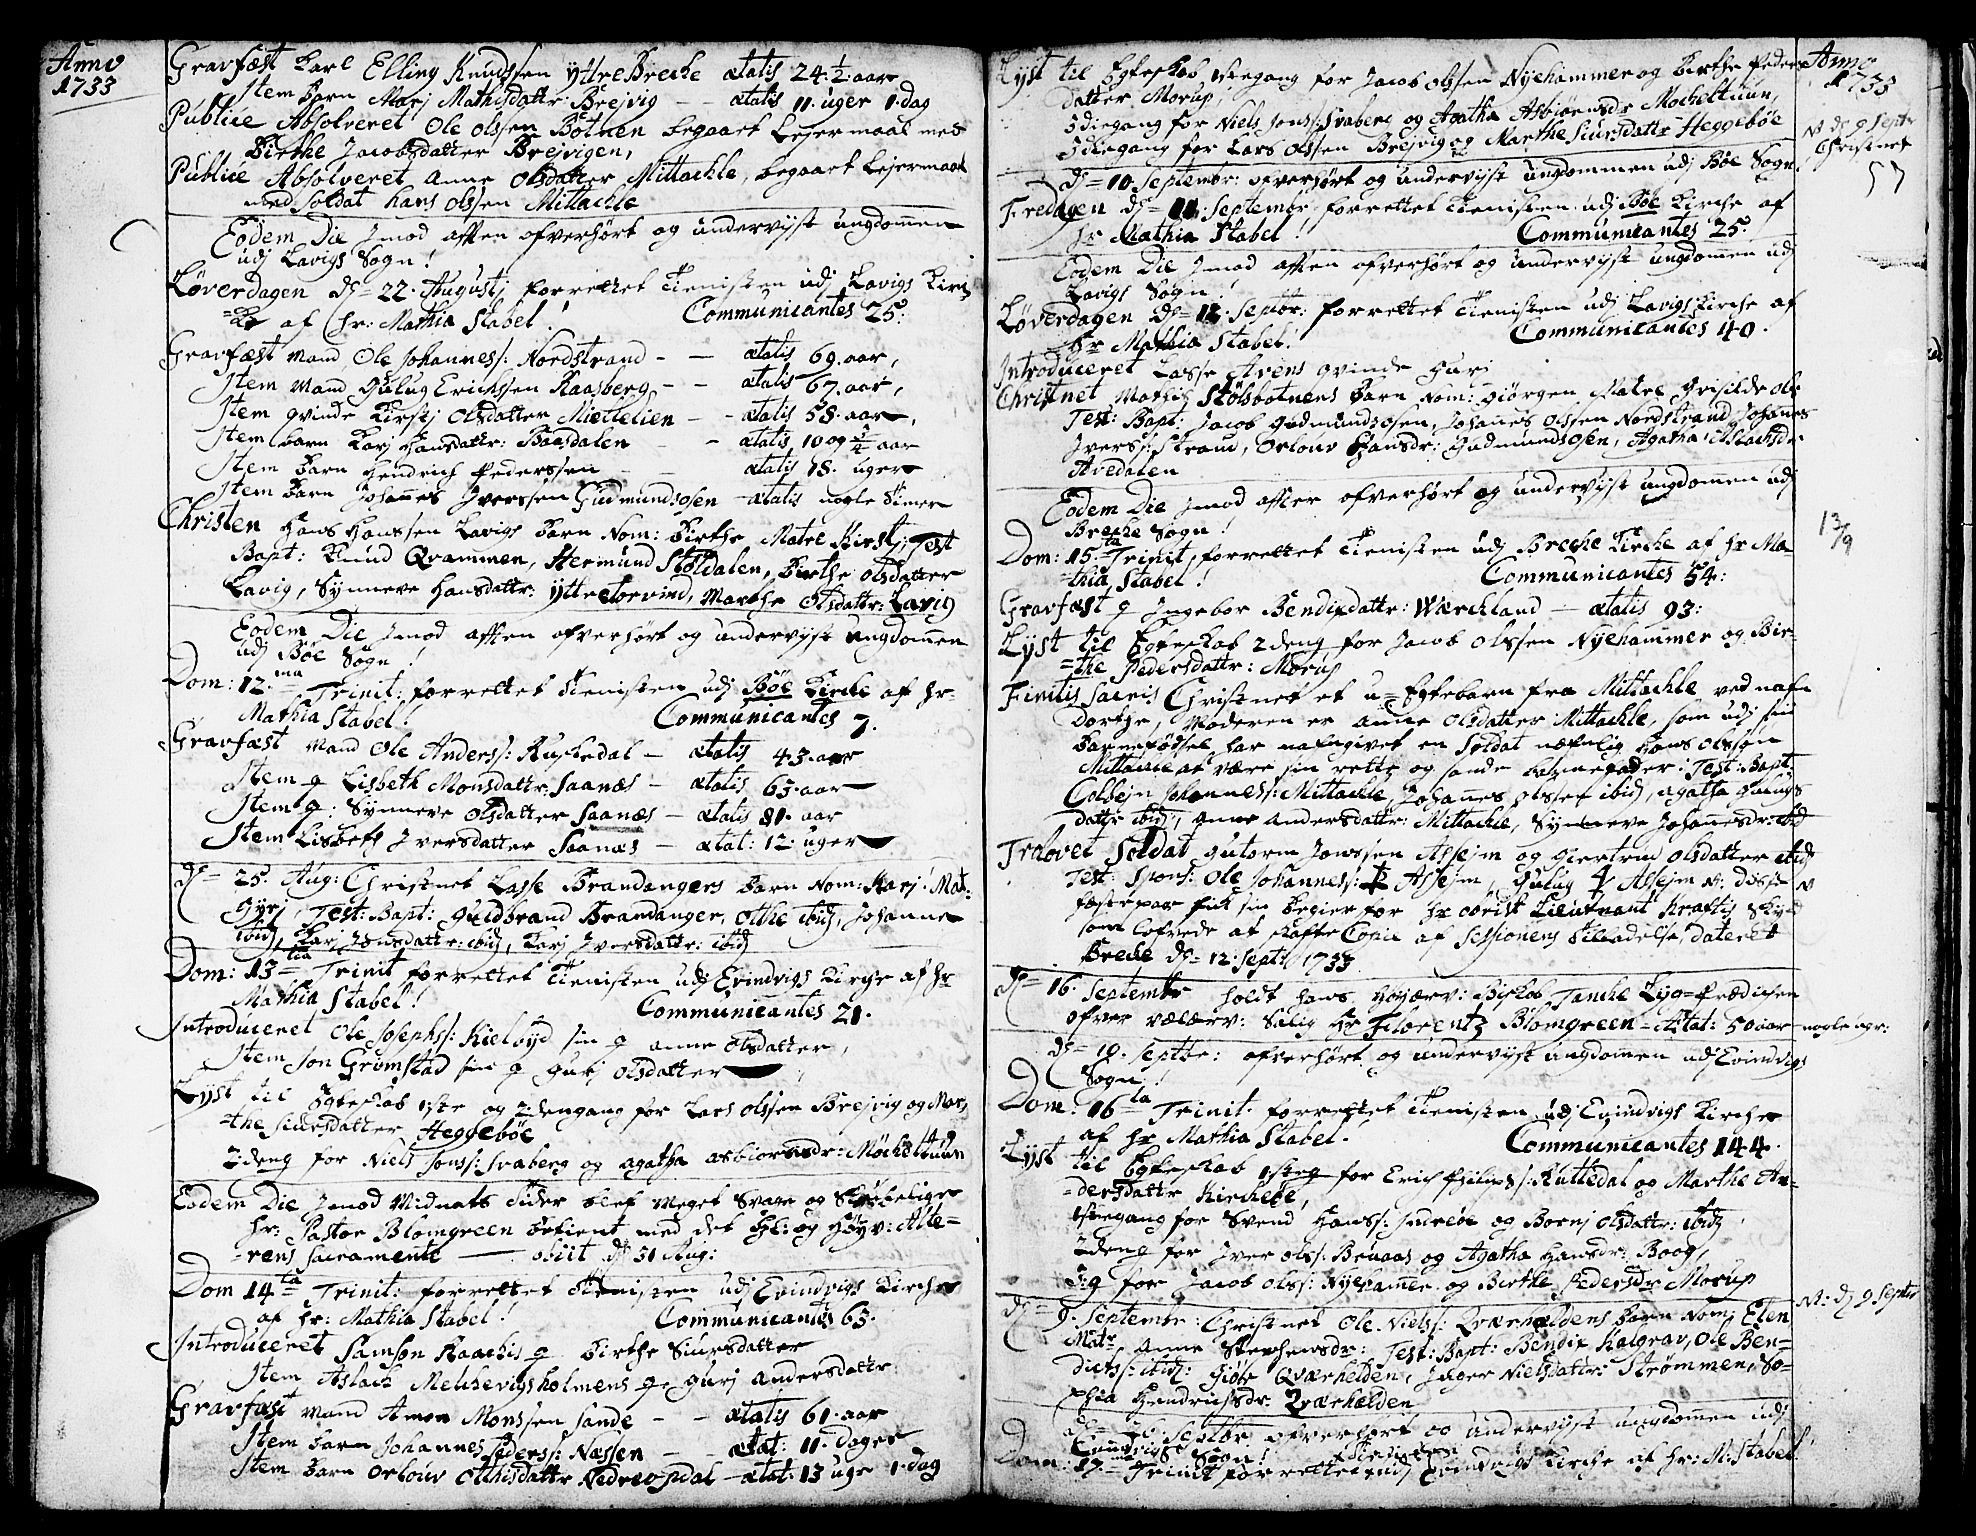 Anno
1733
Gravfæst Karl Elling Knudssen YttreBreche ætatis 24 1/2 aar
Item Barn Marj Mathisdattr: Brejvig - - ætatis 11. uger 1. dag
Publice Absolveret Ole Olssen Botnen begaaet Lejermaal med
Birthe Jacobsdatter Brejvigen,
Publice Absolveret Anne Olsdatter Mittachle, begaaet Lejermaal
med Soldat Hans Olssen Mittachle
Eodem Die Imod afften ofverhørt og undervijst ungdommen
udj Lavigs Sogn!
Løverdagen d= 22. Augustj forrettet Tienisten udj Lavigs Kirc
=ke af hr: Mathia Stabel! Communicantes 25.
Gravfæst Mand Ole Johanness: Nordstrand - - ætatis 69. aar,
Item Mand Gulug Erichssen Raasberg - - ætatis 67. aar,
Item qvinde Kirstj Olsdatter Mættelien - - ætatis 58. aar,
Item barn Karj Hansdattr: Baasdalen - - ætatis 10 og 1/2 aar
Item Barn Hendrich Pederssen - - ætatis 18. uger
Item Barn Johannes Iverssen Gudmundsosen - ætatis nogle Timer
Christen Hans Hanssen Lavigs Barn Nom: Birthe Matre Kirstj, Test
Bapt: Knud Qvammen, Hermund Støldalen, Birthe Olsdatter
Lavig, Synneve Hansdattr: Yttretorvind, Marthe Olsdattr: Lavig
Eodem Die Imod afften ofverhørt og undervijst ungdommen
udj Bøe Sogn!
Dom: 12.ma Trinit: forrettet Tienisten udj Bøe Kirche af hr
Mathia Stabel! Communicantes 7.
Gravfæst Mand Ole Anderss: Ruttedal - ætatis 43. aar
Item q Lisbeth Monsdattr: Saanæs - ætatis 63. aar
Item q: Synneve Olsdatter Saanæs - ætatis 81. aar
Item Lisbeth Iversdatter Saanæs - ætat: 12. uger
d= 25. Aug: Christnet Lasse Brandangers Barn Nom: Karj: Mat.
Gyrj, Test: Bapt: Guldbrand Brandanger, Othe ibid, Johanne
ibid, Karj Jonsdatter: ibid, Karj Iversdattr: ibid
Dom: 13=tia Trinit forrettet Tienisten udj Evindvigs Kirche af hr
Mathia Stabel! Communicantes 21.
Introduceret Ole Josephs: Kielbyd sin q anne Olsdatter,
Item Jon Grimstad sin q Gurj Olsdatter
Lyst til Egteskab 1ste og 2dengang for Lars Olssen Brejvig og Mar
=the Siursdatter Heggebøe
2deng for Niels Jonss: Svaberg og agatha asbiornsdr: Møcheltuun
Eodem Die Imod Midnats tider blef Meget Svage og Skrøbelige
hr: Pastor Blomgreen betient med det Hl: og Høyv: Alte=
=rens Sacramente — obiit d: 31 Aug:
Dom 14ta Trinit: forrettet Tienisten udj Evindvigs Kirche
af hr: Mathia Stabel! Communicantes 63.
Introduceret Samson Raachis q Birthe Siursdatter
Item Aslach Melchevigsholmens q gurj andersdatter
Gravfæst Mand Amon Monssen Sande - - ætatis 61. aar
Item Barn Johannes Pederss: Næssen - - ætat: 11. dager
Item Barn Orlouv Otthisdattr Nedreopdal - ætat: 13 uge 1. dag
Lyst til Egteskab 1stegang for Jacob Olssen Nyehammer og Birthe Peders
datter Morup,
3diegang for Niels Jonss: Svaberg og Agatha Asbiornsdr Mocheltuun,
3diegang for Lars Olssen Brejvig og Marthe Siursdattr Heggebøe
d= 10. Septembr: ofverhørt og undervijst ungdommen udj Bøe Sogn.
Fredagen d= 11. Septembr, forrettet Tienisten udj Bøe Kirche af
hr Mathia Stabel! Communicantes 25.
Eodem Die Imod afften ofverhørt og undervijst ungdommen udj
Lavigs Sogn!
Løverdagen d= 12. Septbr: forrettet Tienisten udj Lavigs Kirche af
hr Mathia Stabel! Communicantes 40.
Introduceret Lasse Arens qvinde Gurj
Christnet Mathis Stølsbotnens Barn Nom: Giørgen, Matre Grisilde Ols
Test: Bapt: Jacob Gudmundsosen, Johannes Olssen Nordstrand, Johannes
Iverss: Strand, Orlouv Hansdr: Gudmundsosen, Agatha Aslachsdr
Avedalen
Eodem Die Imod afften ofverhørt og undervijst ungdommen udj
Breche Sogn!
Dom: 15=ta Trinit, forrettet Tienisten udj Breche Kirche af hr Ma-
=thia Stabel! Communicantes 54:
Gravfæst q Ingebor Bendixdattr: Wærchland — ætatis 93:
Lyst til Egteskab 2deng for Jacob Olssen Nyehammer og Bir-
=the Pedersdattr: Morup
Finitis Sacris Christnet et u=Egtebarn fra Mittachle ved nafn
Dorthe, Moderen er anne Olsdatter Mittachle, som udj sin
Barnefødsel har nafngivet en Soldat nafnlig Hans Olssøn
Mittachle at være sin rette og sande barnefader: Test: Bapt
Colbejn Johanness: Mittachle, Johannes Olssen ibid, agatha gulugs
dattr ibid, Anne Andersdattr: Mittachle, Synneve Johannesdr: ibid
Trolovet Soldat Gutorm Jonssen Assejm og Giertrud Olsdatter ibid
Test: Spons: Ole Johanness: Assejm, Gulug Assejm Nt: Disse
fæstepar fik sin begier for hr Oberst Lieutnant Kraftis skyld
som lofvede at skaffe Copie af Sessionens tilladelse dateret
Breche d= 12. Septr 1733
d= 16. Septembr holdt hans Høyærv: Biskob Tanche Lijg=Prædichen
ofver velærv: Salig Hr Florentz Blomgreen - Ætat: 50 aar
d= 19. Septbr: ofverhørt og undervijst ungdommen udj Evindvigs
Sogn!
Dom: 16ta Trinit. forrettet Tienisten udj Evindvigs Kirche
af hr Mathia Stabel. Communicantes 144.
Lyst til Egteskab 1steg for Erich Philips: Ruttedal og Marthe An-
=dersdattr Kirchebøe,
1stegang for Svend Hanss: Indrebøe og Bornj Olsdattr: ibid
2deng for Iver Olss: Bruaas og Agatha Hansdr: Boog,
3: g for Jacob Olss: Nyehamer og Birthe Pedersdr Morup
d= 9. Septembr: Christnet Ole Nielss: Qværheldens Barn Nom: Elen
Matr Anne Stephensdr: Test: Bapt: Bendix Halgrav, Ole Ben-
dictss: ibid: Giør Qværhelden, Inger Nielsdattr: Strømmen, So-
phia Hendrichsdr: Qværhelden
d= Septbr ofverhørt og undervijst ungdommen udj
Evindvigs Sogn!
Dom: 17=ma Trinit forrettet Tienisten udj Evindvigs Kirche af hr: M: Stabel!
Anno
1733
Nt d: 9 Septr
Christnet
57
13/9
nogle uger:
Nt: d: 9 Septr